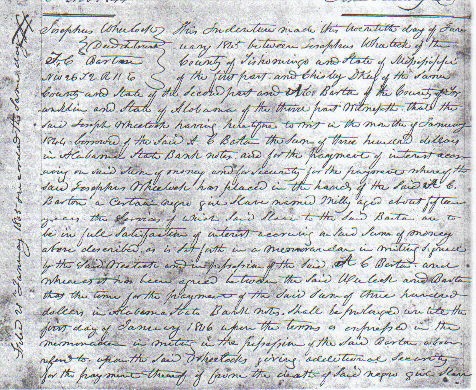 Josephus Wheelock
Deed of Trust
To
A C Barton
This Indenture made this twentieth day of Jan
uary 1845 between Josephus Wheelock of the
County of Tishomingo and State of Mississippi
of the first part and of the same
County and State of the second part and A C Barton of the County of
Franklin and State of Alabama of the third part Witnesseth that the
said Joseph Wheelock having heretofore to wit in the month of January
borrowed of the said A C Barton the sum of three hundred dollars
in Alabama State Bank notes and for the payment of interest accru
ing on said sum of money and for security for the payment whereof the
said Josephus Wheelock has placed in the hands of the said A C
Barton a certain negro girl slave named Milly aged about fifteen
years the services of which said slave to the said Barton are to
be in full satisfaction of interest accruing on said sum of money
above described as is set forth in a memorandum in writing signed
by the said Wheelock and in possession of the said A C Barton and
whereas it has been agreed between the said Wheelock and Barton
that the time for the payment of the said sum of three hundred
dollars in Alabama State Bank notes shall be prolonged until the
first day of January 1846 upon the terms as expressed in the
memorandum in writing in the possession of the said Barton above
upon the said Wheelock giving additional security
for the payment thereof if from the death of said negro girl slave
Filed 21 January 1845 and recorded the same day